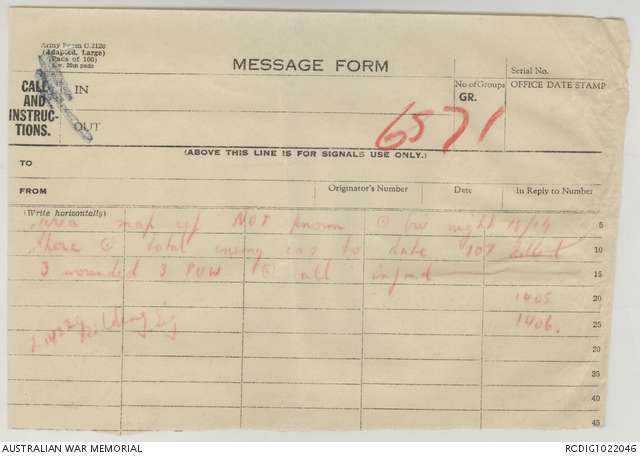 Army Form C.2128
(Adapted, Large)
(Pads of 100)
MESSAGE FORM
Serial No.
CALL
AND
INSTRUC-
TIONS.
IN
OUT
No of Groups
GR.
OFFICE DATE STAMP
6571
(ABOVE THIS LINE IS FOR SIGNALS USE ONLY.)
TO
FROM
Originator's Number
Date
In Reply to Number
(Write horizontally)
area map NOT known night
5
here total enemy cas to date 107 killed
10
3 wounded 3 POW all infmd
15
1405
20
1406.
25
20
35
40
45
AUSTRALIAN WAR MEMORIAL
RCDIG1022046